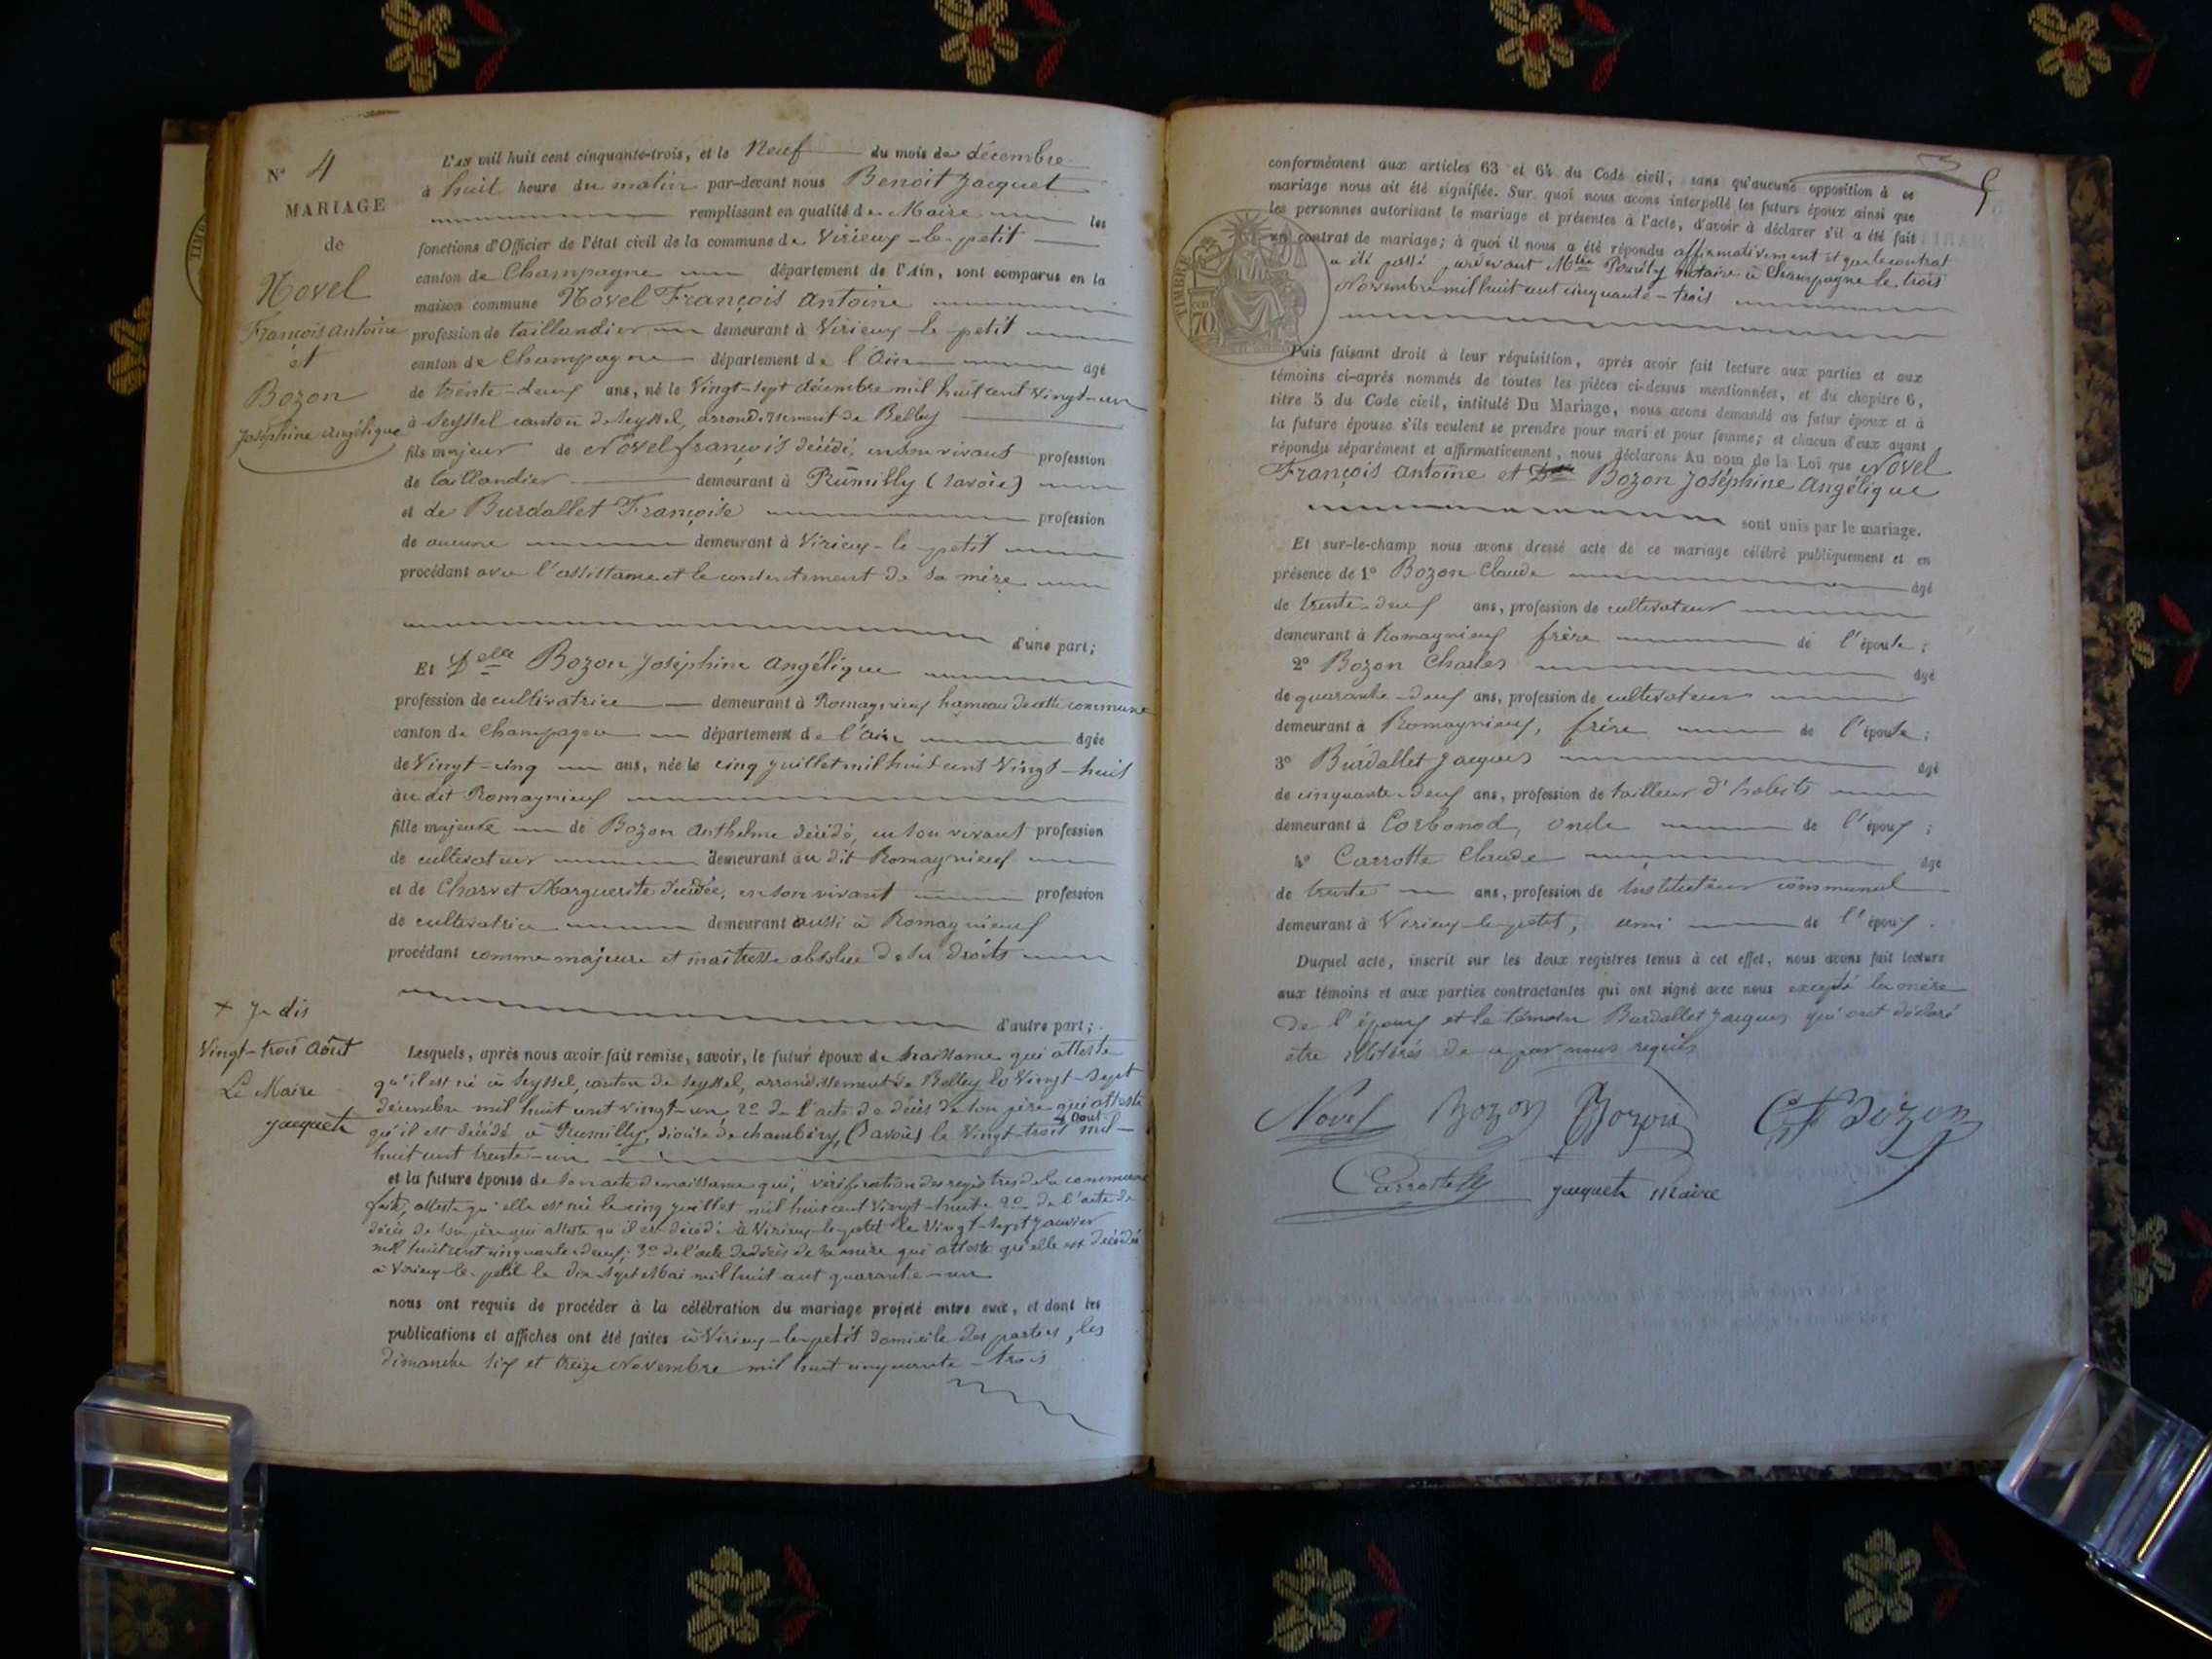 N° 4
MARIAGE
de
Novel
François antoine
et
Bozon
Joséphine Angélique
L'an mil huit cent cinquante-trois, et le Neuf du mois de décembre
à huit heure du matin par-devant nous Benoit Jacquet
remplissant en qualité de Maire les
fonctions d'Officier de l'état civil de la commune de Virieux-le-petit
canton de Champagne département de l'Ain, sont comparus en la
maison commune Novel François Antoine
profession de taillandier demeurant à Virieux-le-petit
canton de Champagne département de l'Ain âgé
de trente-deux ans, né le Vingt-sept décembre mil huit cent Vingt-un
à Seyssel canton de Seyssel, arrondissement de Belley
fils majeur de Novel françois décédé, en son vivant profession
de taillandier demeurant à Rumilly (Savoie)
et de Burdallet Françoise profession
de aucune demeurant à Virieux-le-petit
procédant avec l'assistance et le consentement de sa mère
d'une part;
Et Delle Bozon Joséphine Angélique
profession de cultivatrice demeurant à Romagnieux hameau de cette commune
canton de Champagne département de l'Ain âgée
de Vingt-cinq ans, née le cinq juillet mil huit cent Vingt-huit
au dit Romagnieux
fille majeure de Bozon Anthelme décédé, en son vivant profession
de cultivateur demeurant au dit Romagnieux
et de Charvet Marguerite décédée, en son vivant profession
de cultivatrice demeurant aussi à Romagnieux
procédant comme majeure et maîtresse absolue de ses droits
d'autre part;
+ Je dis
Vingt-trois Août
Le Maire
Jacquet
Lesquels, après nous avoir fait remise, savoir, le futur époux de naissance qui atteste
qu'il est né à Seyssel, canton de Seyssel, arrondissement de Belley le Vingt-sept
décembre mil huit cent vingt-un 2° de l'acte de décès de son père qui atteste
qu'il est décédé à Rumilly, diocèse de chambéry, (Savoie) le Vingt-trois + Aout mil-
huit cent trente-un
et la future épouse de son acte de naissance qui, vérification des registres de la commune
faite, atteste qu'elle est née le cinq juillet mil huit cent Vingt-huit 2° de l'acte de
décès de son père qui atteste qu'il est décédé à Virieux-le-petit le Vingt-sept Janvier
mil huit cent cinquante-deux; 3° de l'acte de décès de sa mère qui atteste qu'elle est décédée
à Virieux-le-petit le dix-sept Mai mil huit cent quarante-un
nous ont requis de procéder à la célébration du mariage projeté entre eux, et dont les
publications et affiches ont été faites à Virieux-le-petit domicile des parties, les
dimanche six et treize Novembre mil huit cinquante-trois
5
conformément aux articles 63 et 64 du Code civil, sans qu'aucune opposition à ce
mariage nous ait été signifiée. Sur quoi nous avons interpellé les futurs époux ainsi que
les personnes autorisant le mariage et présentes à l'acte, d'avoir à déclarer s'il a été fait
un contrat de mariage; à quoi il nous a été répondu affirmativement et que le contrat
a été passé pardevant notaire à Champagne le trois
Novembre mil huit cent cinquante-trois
TIMBRE
70
Puis faisant droit à leur réquisition, après avoir fait lecture aux parties et aux
témoins ci-après nommés de toutes les pièces ci-dessus mentionnées, et du chapitre 6,
titre 5 du Code civil, intitulé Du Mariage, nous avons demandé au futur époux et à
la future épouse s'ils veulent se prendre pour mari et pour femme; et chacun d'eux ayant
répondu séparément et affirmativement, nous déclarons Au nom de la Loi que Novel
François Antoine et Bozon Joséphine Angélique
sont unis par le mariage.
Et sur-le-champ nous avons dressé acte de ce mariage célébré publiquement et en
présence de 1° Bozon Claude âgé
de trente-deux ans, profession de cultivateur
demeurant à Romagnieux frère de l'épouse;
2° Bozon Charles âgé
de quarante-deux ans, profession de cultivateur
demeurant à Romagnieux, frère de l'épouse;
3° Burdallet Jacques âgé
de cinquante-deux ans, profession de tailleur d'habits
demeurant à Corbonod, oncle de l'époux;
4° Carrotte Claude âgé
de trente ans, profession de Instituteur communal
demeurant à Virieux-le-petit, ami de l'époux.
Duquel acte, inscrit sur les deux registres tenus à cet effet, nous avons fait lecture
aux témoins et aux parties contractantes qui ont signé avec nous excepté la mère
de l'époux et le témoin Burdallet Jacques qui ont déclaré
être illitérés de ce par nous requis
Novel Bozon Bozon Bozon
Carrotte Jacquet Maire